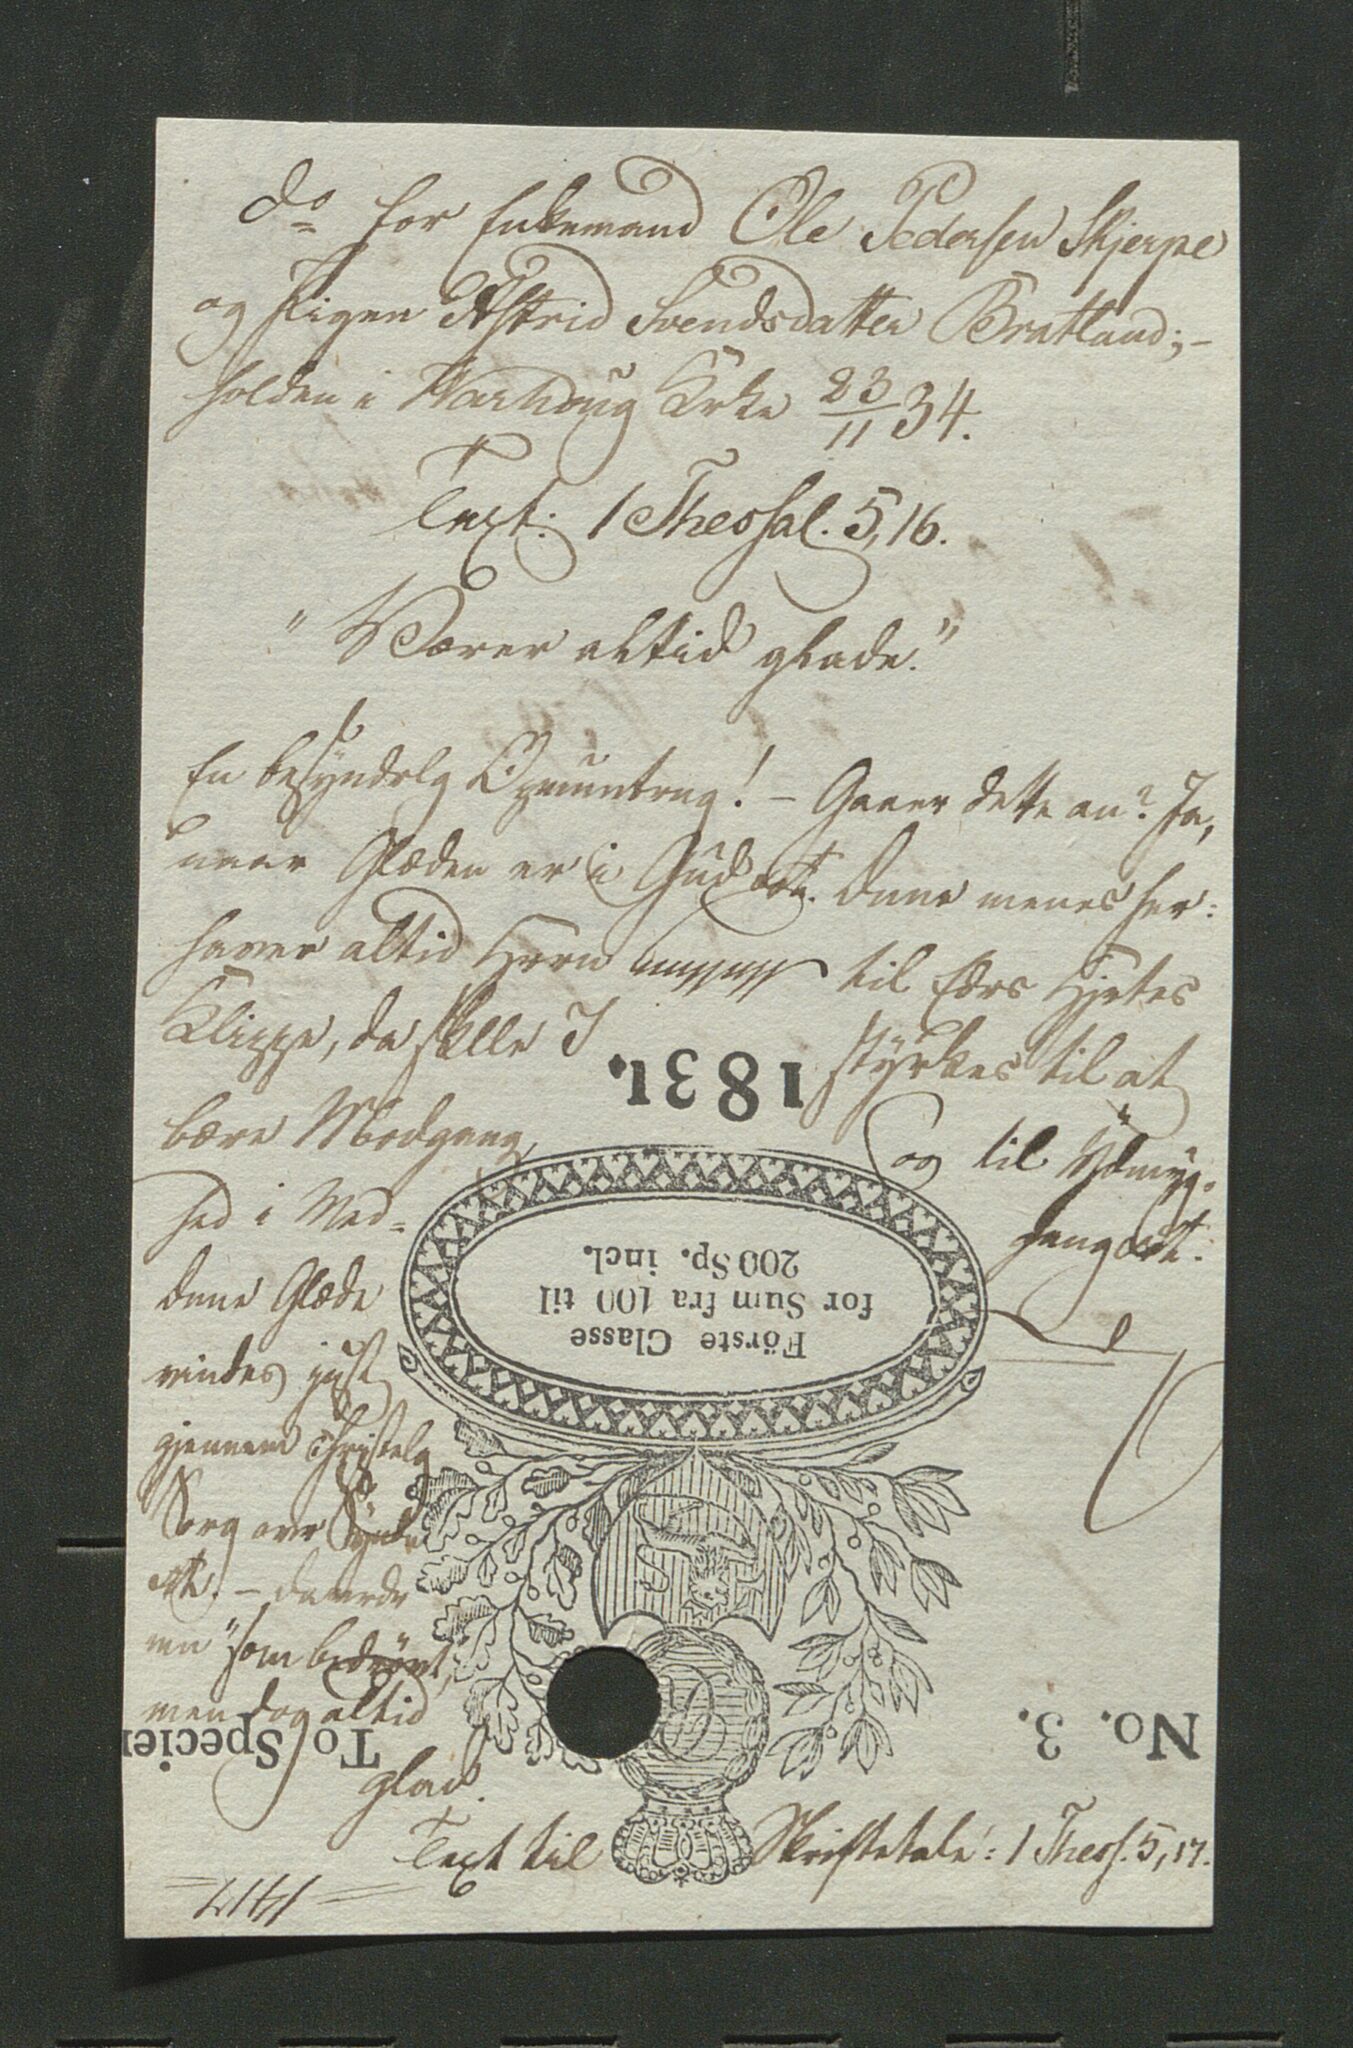 do for Enkemand Ole Pedersen Skjerpe
og Pigen Astrid Svendsdatter Bratland;-
holden i Warhoug Kirke 23/11 34.
Text: 1 Thessal. 5,16.
"Værer altid glade."
En besynderlg Opmuntrng! - Gaaer dette an? Ja,
naar Glæden er i Gud etc. Denne menes her:
haver altid Hrren til Eders Hjertes
Klippe, da skulle I styrkes til at
bære Modgang, og til Ydmyg-
hed i Med-
gang etc.
denne Glæde
vindes just
gjennem Christelg
Sorg over Synden
etc. -
"som bedrøvet,
men dog altid
glad.
Text til Skriftetale: 1 Thess. 5,17.
1831.
Förste Classe
for Sum fra 100 til
200 Sp. incl.
No. 3.
To Specier